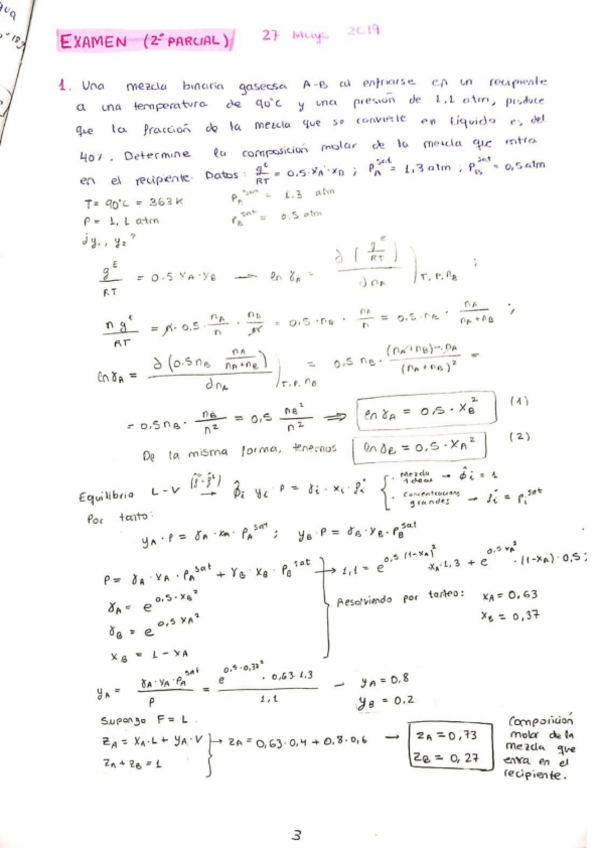 EXAMEN (2º PARCIAL) 27 Mayo 2019
1. Una mezcla binaria gaseosa A-B al enfriarse en un recipiente
a una temperatura de 90°C y una presión de 1,1 atm, produce
que la fracción de la mezcla que se convierte en líquido es del
40%. Determine la composición molar de la mezcla que entra
en el recipente. Datos: g^E/RT = 0,5·x_A·x_B ; P_A^sat = 1,3 atm, P_B^sat = 0,5 atm
T = 90°C = 363K P_A^sat = 1.3 atm
P = 1,1 atm P_B^sat = 0.5 atm
¿y₁, y₂?
g^E/RT = 0.5 x_A·x_B → ln γ_A = ∂(g^E/RT)/∂n_A |T,P,n_B ;
n g^E/RT = n·0,5·n_A/n·n_B/n = 0,5·n_B·n_A/n = 0,5·n_B·n_A/(n_A+n_B) ;
ln γ_A = ∂(0.5 n_B n_A/(n_A+n_B))/∂n_A |T,P,n_B = 0,5 n_B·((n_A+n_B)-n_A)/(n_A+n_B)² =
= 0,5 n_B·n_B/n² = 0,5 n_B²/n² ⇒ ln γ_A = 0,5·x_B² (1)
De la misma forma, tenemos ln γ_B = 0,5·x_A² (2)
Equilibrio L-V → φ̂_i y_i·P = γ_i·x_i·f_i° { · mezcla ideal → φ̂_i = 1
· Concentraciones grandes → f_i° = P_i^sat
Por tanto:
y_A·P = γ_A·x_A·P_A^sat ; y_B·P = γ_B·x_B·P_B^sat
P = γ_A·x_A·P_A^sat + γ_B·x_B·P_B^sat → 1,1 = e^(0,5(1-x_A)²)·x_A·1,3 + e^(0,5 x_A²)·(1-x_A)·0,5 ;
γ_A = e^(0,5·x_B²)
Resolviendo por tanteo: x_A = 0,63
γ_B = e^(0,5 x_A²)
x_B = 0,37
x_B = 1 - x_A
y_A = γ_A·x_A·P_A^sat/P = e^(0.5·0,37²)·0,63·1,3/1,1 → y_A = 0.8
y_B = 0.2
Supongo F = L.
z_A = x_A·L + y_A·V → z_A = 0,63·0,4 + 0.8·0,6 → z_A = 0,73
z_A + z_B = 1 z_B = 0,27
Composición
molar de la
mezcla que
entra en el
recipiente.
3